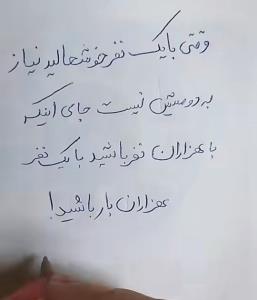 وقتی با یک نفر خوشحالید نیاز
به دومین نیست جای اینکه
با هزاران نفر باشید با یک نفر
هزاران بار باشید!